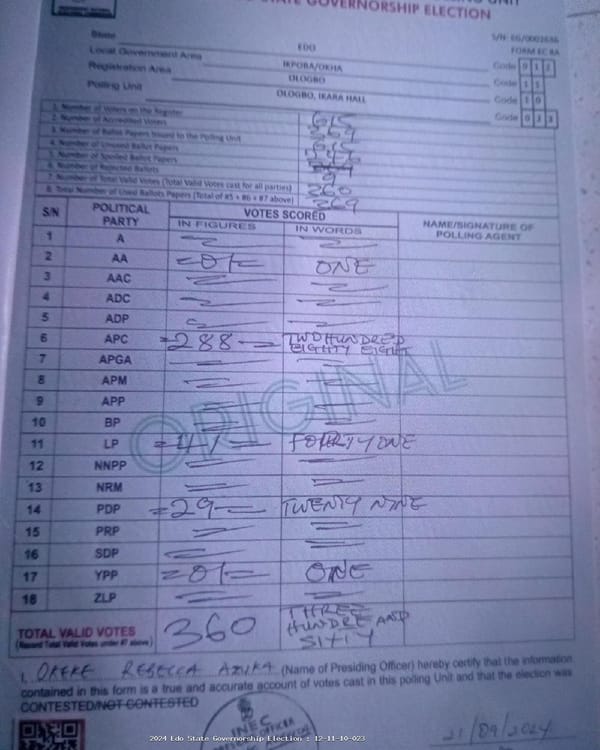 STATE GOVERNORSHIP ELECTION
S/N: EG/0002686
FORM EC 8A
State EDO Code 0 1 2
Local Government Area IKPOBA/OKHA Code 1 1
Registration Area OLOGBO Code 1 0
Polling Unit OLOGBO, IKARA HALL Code 0 2 3
1. Number of Voters on the Register 615
2. Number of Accredited Voters 369
3. Number of Ballot Papers Issued to the Polling Unit 615
4. Number of Unused Ballot Papers
5. Number of Spoiled Ballot Papers
6. Number of Rejected Ballots 9
7. Number of Total Valid Votes (Total Valid Votes cast for all parties) 360
8. Total Number of Used Ballots Papers (Total of #5 + #6 + #7 above) 369
S/N POLITICAL PARTY VOTES SCORED NAME/SIGNATURE OF POLLING AGENT
IN FIGURES IN WORDS
1 A
2 AA =01= ONE
3 AAC
4 ADC
5 ADP
6 APC =288= TWO HUNDRED EIGHTY EIGHT
7 APGA
8 APM
9 APP
10 BP
11 LP =41= FOURTY ONE
12 NNPP
13 NRM
14 PDP =29= TWENTY NINE
15 PRP
16 SDP
17 YPP =01= ONE
18 ZLP
ORIGINAL
TOTAL VALID VOTES 360 THREE HUNDRE AND SIXTY
(Record Total Valid Votes under #7 above)
I, OKEKE REBECCA AZUKA (Name of Presiding Officer) hereby certify that the information
contained in this form is a true and accurate account of votes cast in this polling Unit and that the election was
CONTESTED/NOT CONTESTED
INEC
21/09/2024
2024 Edo State Governorship Election : 12-11-10-023